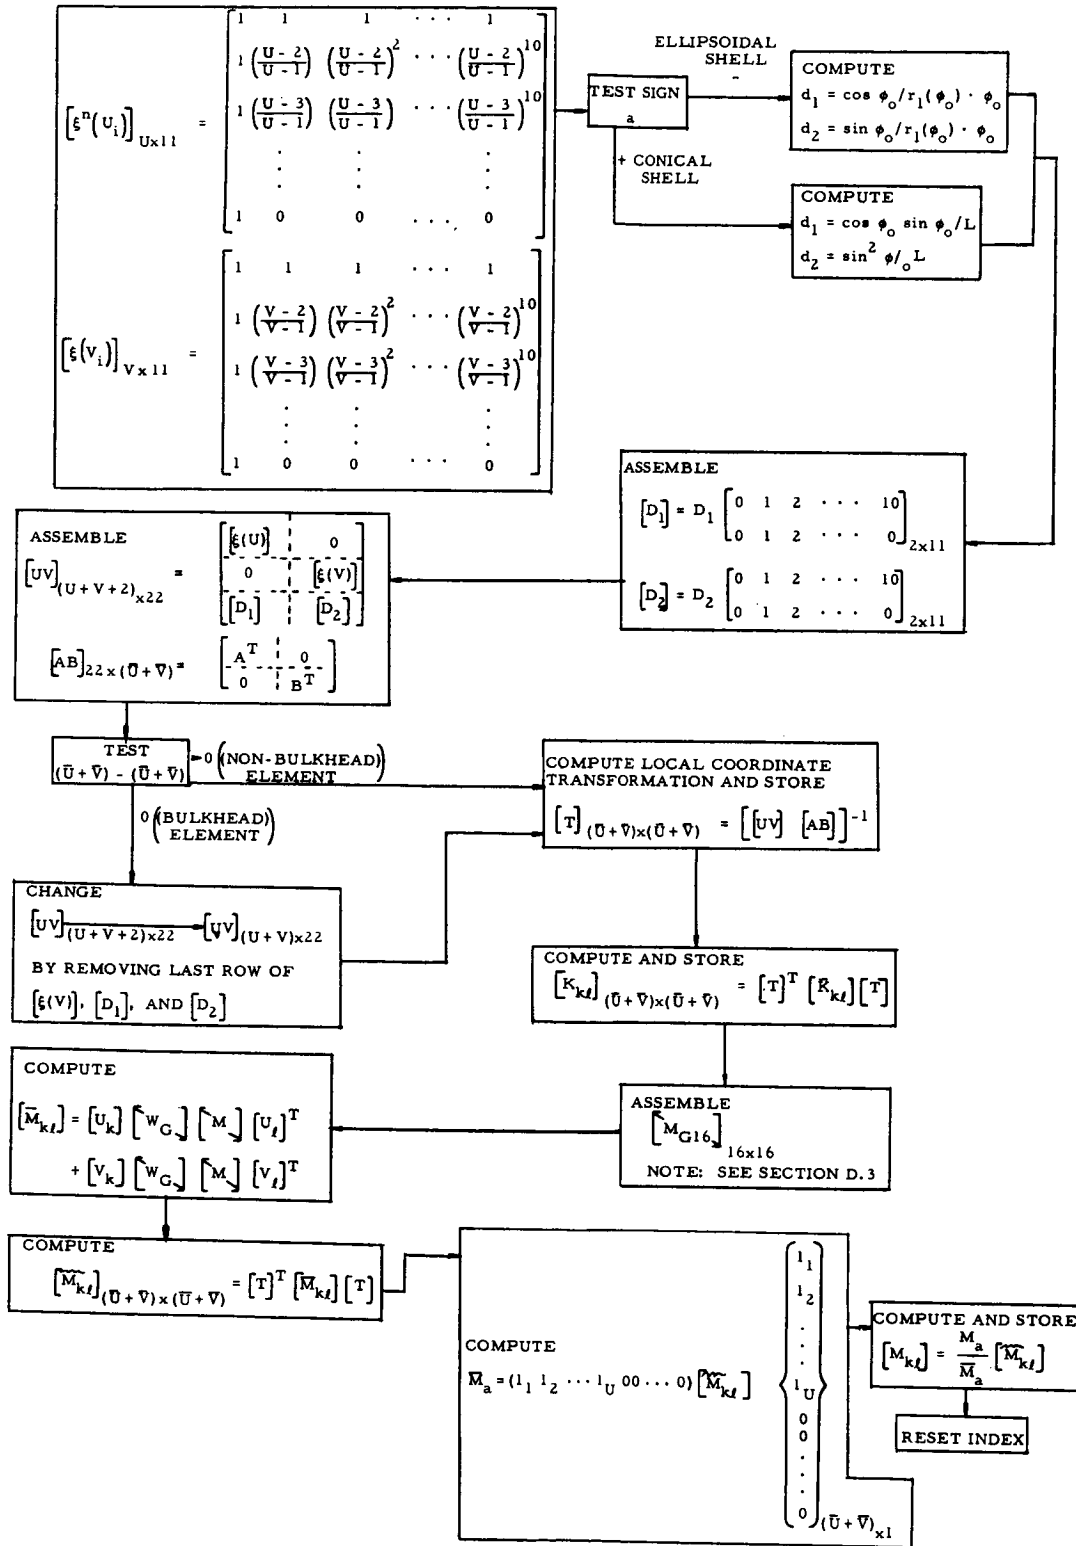 [ξⁿ(U_i)]_Ux11 =
1 1 1 · · · 1
1 (U - 2 / U - 1) (U - 2 / U - 1)^2 · · · (U - 2 / U - 1)^10
1 (U - 3 / U - 1) (U - 3 / U - 1)^2 · · · (U - 3 / U - 1)^10
1 0 0 · · · 0
[ξ(V_i)]_Vx11 =
1 1 1 · · · 1
1 (V - 2 / V - 1) (V - 2 / V - 1)^2 · · · (V - 2 / V - 1)^10
1 (V - 3 / V - 1) (V - 3 / V - 1)^2 · · · (V - 3 / V - 1)^10
1 0 0 · · · 0
TEST SIGN
a
ELLIPSOIDAL
SHELL
-
COMPUTE
d_1 = cos φ_o/r_1(φ_o) · φ_o
d_2 = sin φ_o/r_1(φ_o) · φ_o
+ CONICAL
SHELL
COMPUTE
d_1 = cos φ_o sin φ_o/L
d_2 = sin^2 φ/_o L
ASSEMBLE
[D_1] = D_1 [0 1 2 · · · 10
0 1 2 · · · 0]_2x11
[D_2] = D_2 [0 1 2 · · · 10
0 1 2 · · · 0]_2x11
ASSEMBLE
[UV]_(U+V+2)x22 =
[ξ(U)] 0
0 [ξ(V)]
[D_1] [D_2]
[AB]_22x(Ū+V̄) =
A^T 0
0 B^T
TEST
(Ū+V̄) - (Ū+V̄)
>0 (NON-BULKHEAD)
ELEMENT
0 (BULKHEAD)
ELEMENT
COMPUTE LOCAL COORDINATE
TRANSFORMATION AND STORE
[T]_(Ū+V̄)x(Ū+V̄) = [[UV] [AB]]^-1
CHANGE
[UV]_(U+V+2)x22 → [UV]_(U+V)x22
BY REMOVING LAST ROW OF
[ξ(V)], [D_1], AND [D_2]
COMPUTE AND STORE
[K_kℓ]_(Ū+V̄)x(Ū+V̄) = [T]^T [K̄_kℓ] [T]
ASSEMBLE
[M_G16]_16x16
NOTE: SEE SECTION D.3
COMPUTE
[M̄_kℓ] = [U_k] [W_G] [M] [U_ℓ]^T
+ [V_k] [W_G] [M] [V_ℓ]^T
COMPUTE
[M̃_kℓ]_(Ū+V̄)x(Ū+V̄) = [T]^T [M̄_kℓ] [T]
COMPUTE
M̄_a = (1_1 1_2 · · · 1_U 0 0 · · · 0) [M̃_kℓ]
1_1
1_2
·
·
·
1_U
0
0
·
·
·
0
(Ū+V̄)x1
COMPUTE AND STORE
[M_kℓ] = M_a / M̄_a [M̃_kℓ]
RESET INDEX